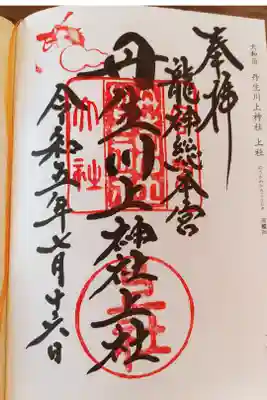 大和國 丹生川上神社 上社
奉拝
龍神総本宮
丹生川上神社上社
令和五年七月十六日